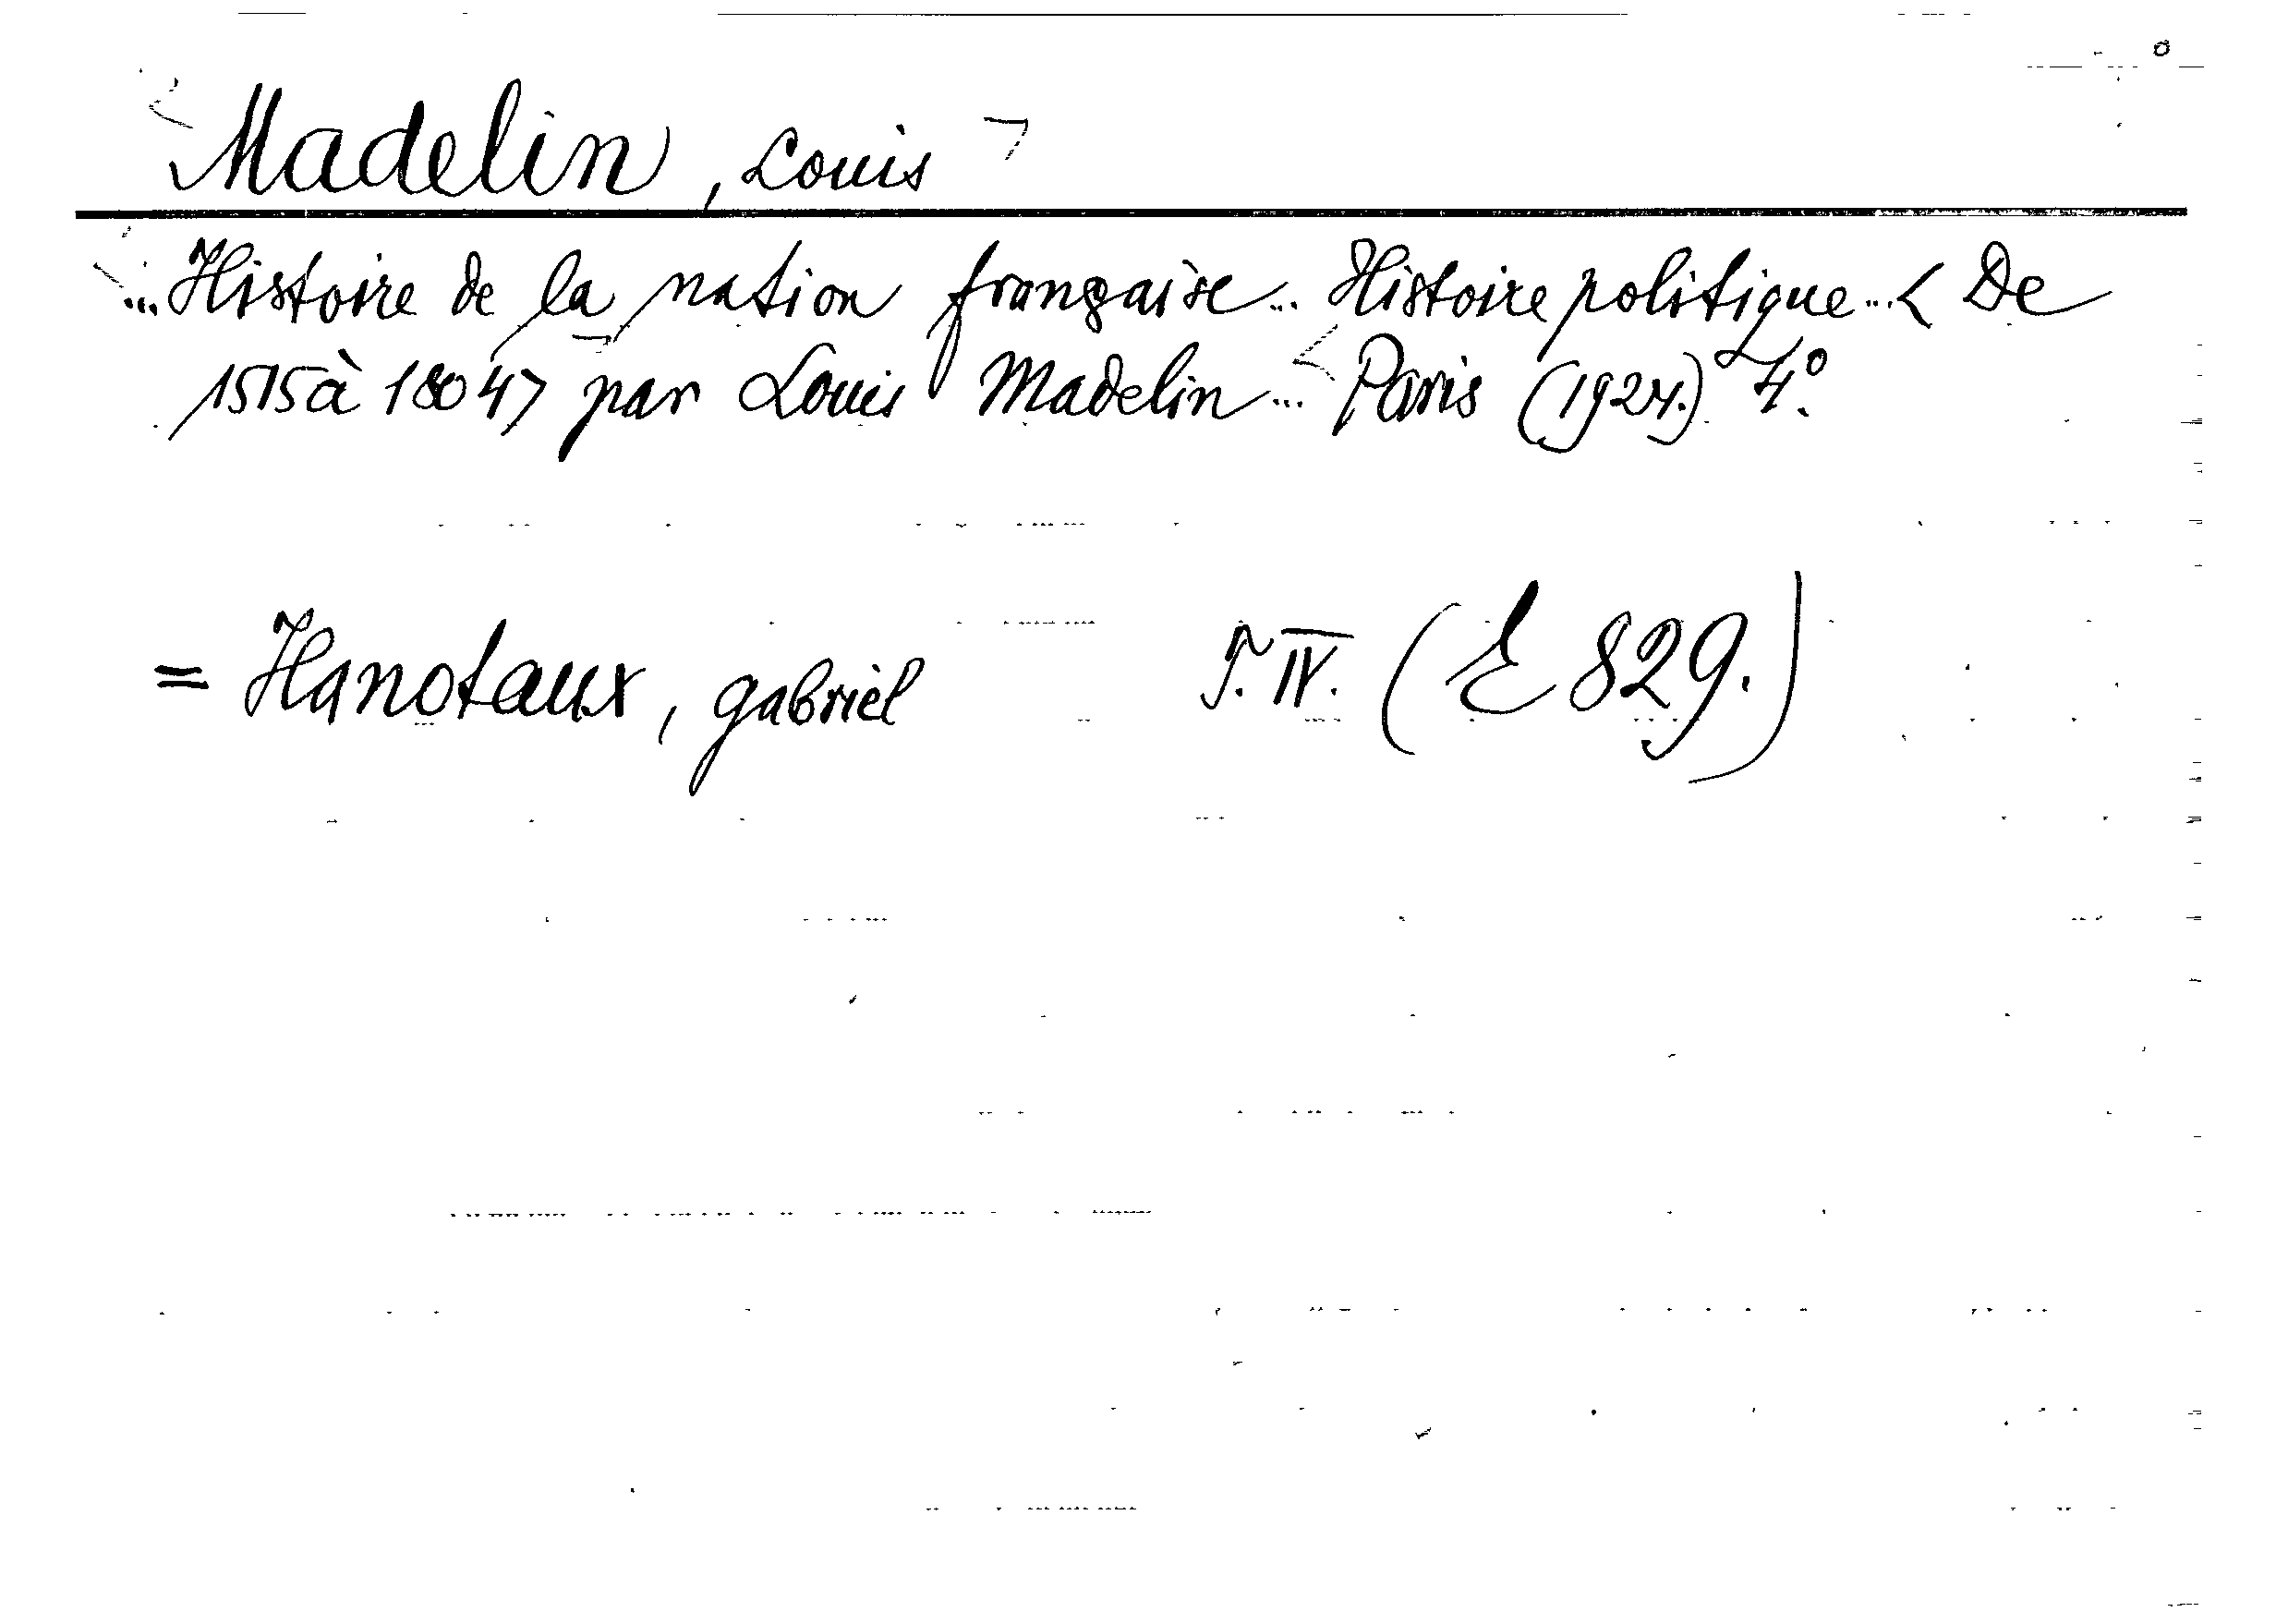 <Madelin, Louis>
<... Histoire de la nation française... Histoire politique... < De
1515 à 1804> par Louis Madelin... <Paris (1924.) 4°.
= Hanotaux, Gabriel T. IV. (E 829.)